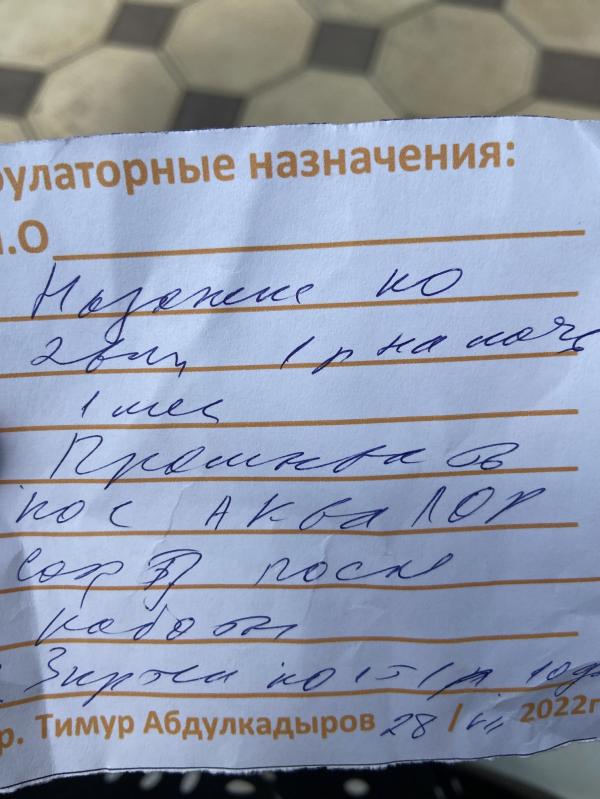 булаторные назначения:
И.О
Назонекс по
2 впш 1 р на ночь
1 мес
Промывать
нос АКВАЛОР
после
работы
Зиртек по 1 т 1 р 10 дн
р. Тимур Абдулкадыров 28 / 2022г